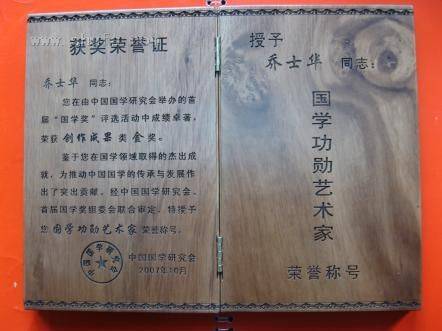 获奖荣誉证
乔士华 同志：
您在由中国国学研究会举办的首
届“国学奖”评选活动中成绩卓著，
荣获创作成果类金奖。
鉴于您在国学领域取得的杰出成
就，为推动中国国学的传承与发展作
出了突出贡献。经中国国学研究会、
首届国学奖组委会联合审定，特授予
您国学功勋艺术家荣誉称号。
中国国学研究会
中国国学研究会
2007年10月
授予
乔士华 同志：
国学功勋艺术家
荣誉称号